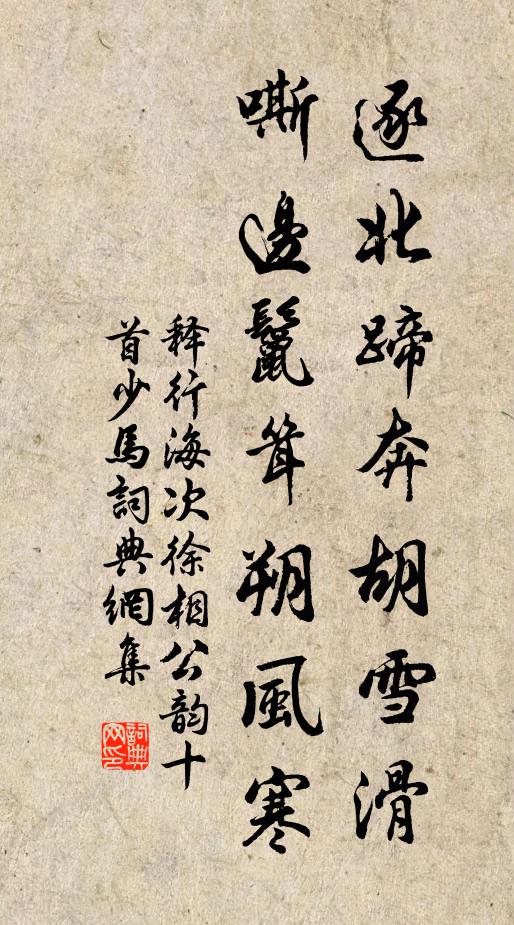 逐北蹄奔胡雪滑
嘶邊鬣耸朔風寒
释行海次徐相公韵十
首少馬詞典網集
詞典
网印